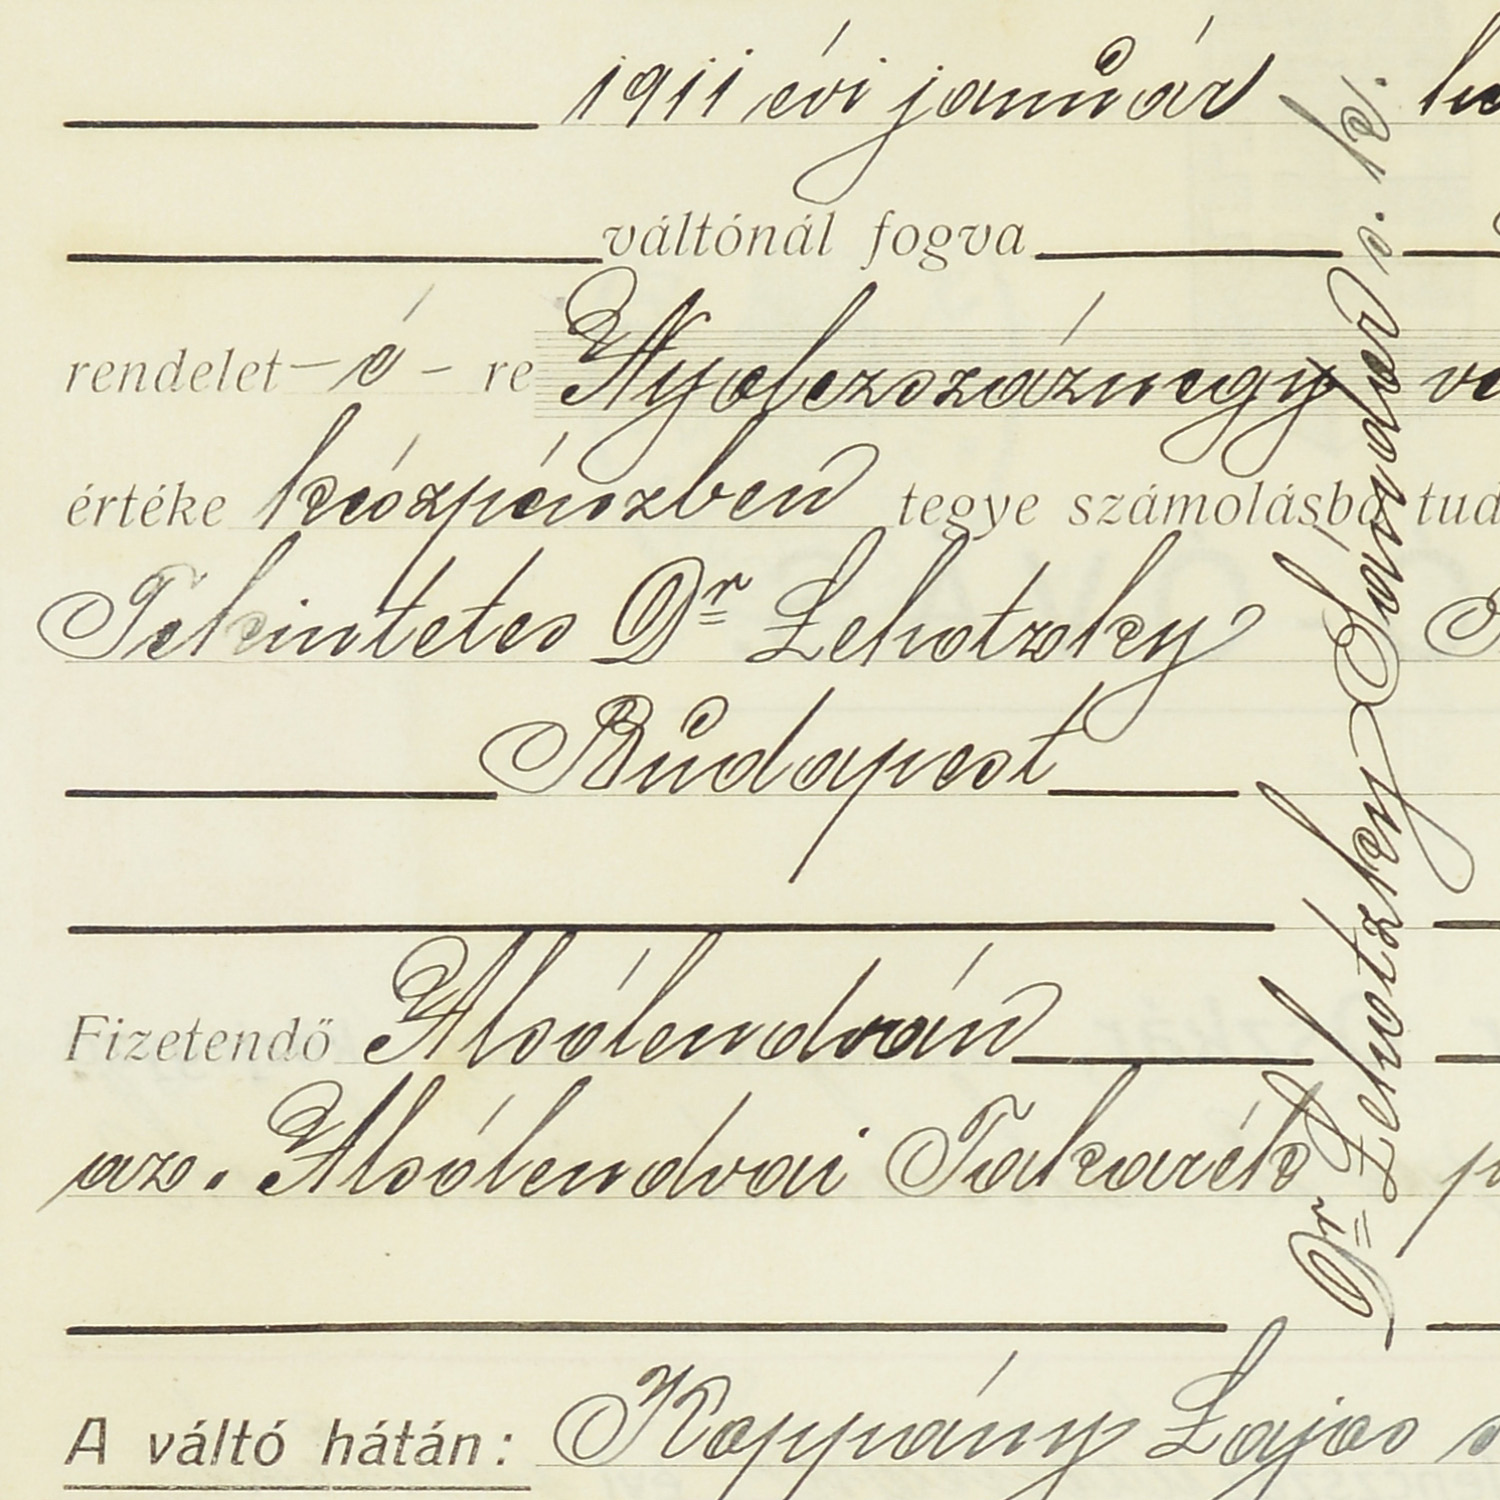 1911 évi január
váltónál fogva
rendelet – ő – re Nyolczszáznegy
értéke készpénzben tegye számolásba tud
Tekintetes Dr Lehotzky
Budapest
Fizetendő Alsólendván
az. Alsólendvai Takarék
A váltó hátán: Koppány Lajos
Dr Lehotzky Sándor s. k.